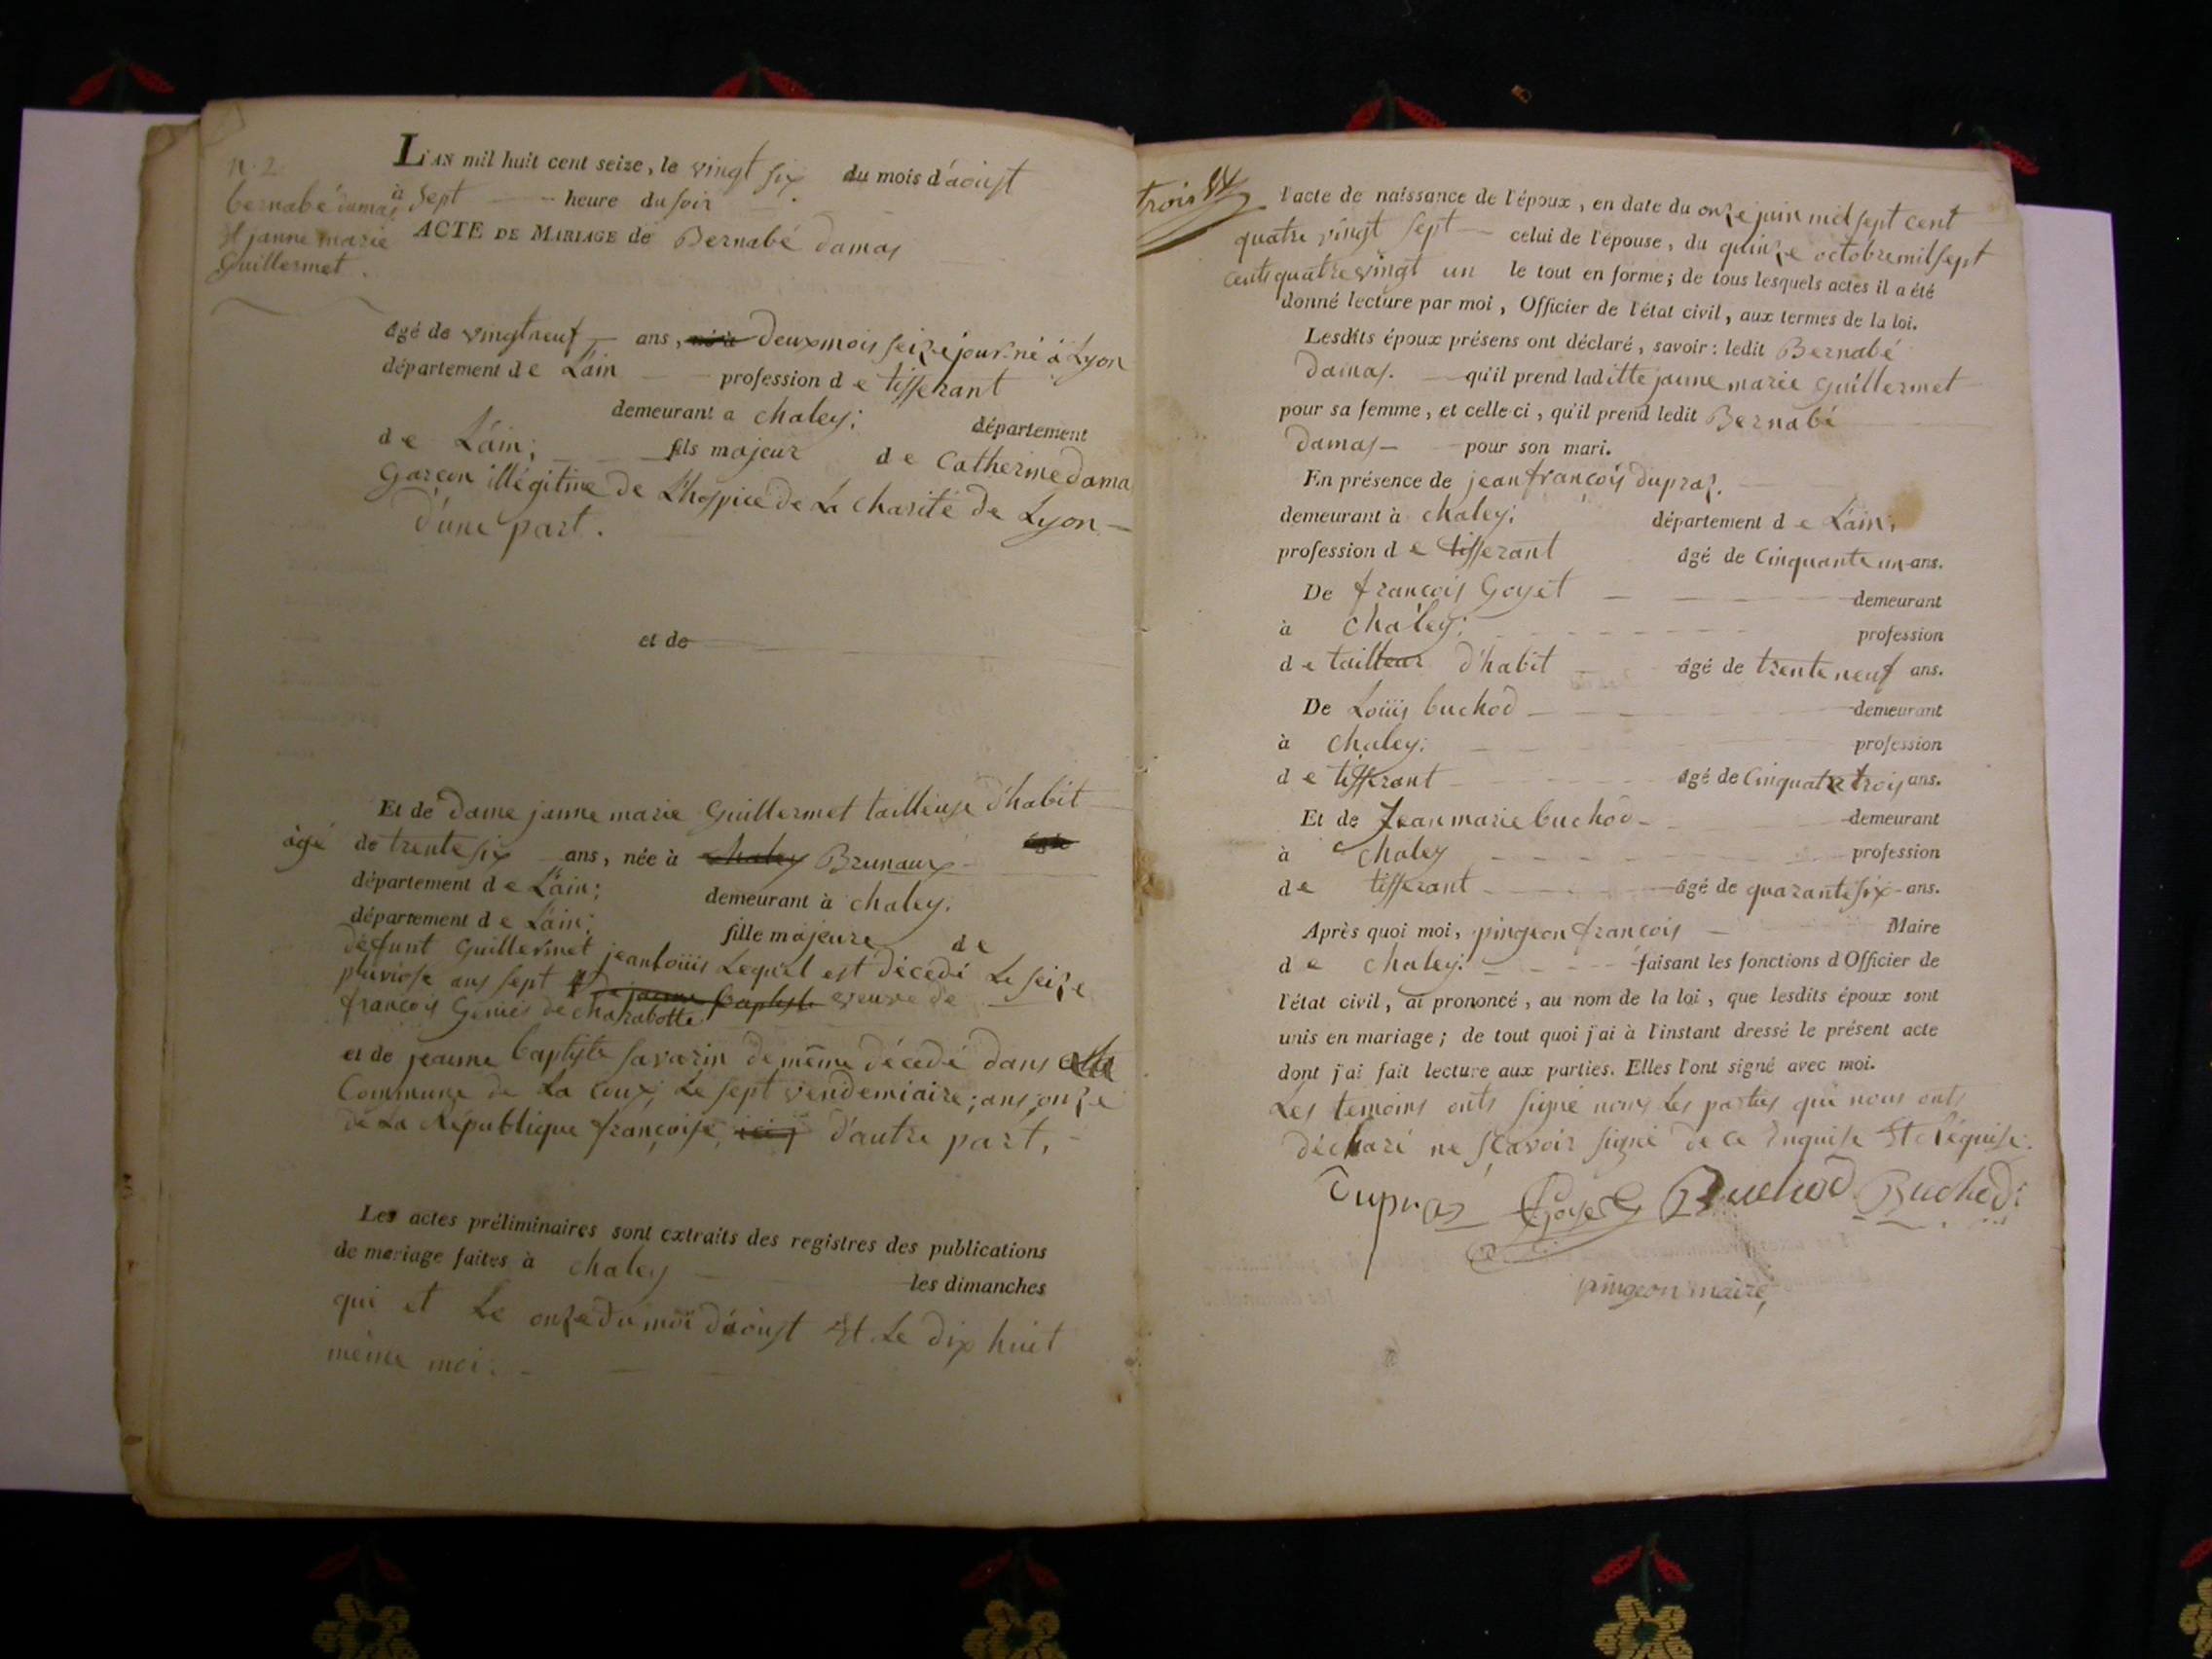 n. 2
bernabé damas
et janne marie
Guillermet.
L'AN mil huit cent seize, le vingt six du mois d'aoust
à sept heure du soir
ACTE DE MARIAGE de Bernabé damas
âgé de vingt neuf ans, deux mois seize jour né à Lyon
département de L'ain profession de tisserant
demeurant a chaley; département
de L'ain; fils majeur de Catherine dama
Garcon illégitime de L'hospice de La Charité de Lyon
d'une part.
et de
Et de dame janne marie Guillermet tailleuse d'habit
âgé de trente six ans, née à chaley Brunaux
département de L'ain; demeurant à chaley.
département de L'ain; fille majeure de
défunt Guillermet jean Loüis Lequel est décédé Le seize
pluviose ans sept et de jeanne baptiste veuve de
françois Geniés de Charabotte
et de jeanne baptiste savarin de même décédé dans
Commune de La Coux, Le sept vendemiaire; ans onze
de La République françoise, d'autre part,
Les actes préliminaires sont extraits des registres des publications
de mariage faites à chaley les dimanches
qui et Le onze du moi d'aoust Et Le dix huit
même moi.
trois
l'acte de naissance de l'époux, en date du onze juin mil sept cent
quatre vingt sept celui de l'épouse, du quinze octobre mil sept
cents quatre vingt un le tout en forme; de tous lesquels actes il a été
donné lecture par moi, Officier de l'état civil, aux termes de la loi.
Lesdits époux présens ont déclaré, savoir: ledit Bernabé
damas. qu'il prend laditte janne marie Guillermet
pour sa femme, et celle ci, qu'il prend ledit Bernabé
damas pour son mari.
En présence de jean françois dupraz.
demeurant à chaley; département de L'ain;
profession de tisserant âgé de Cinquante un ans.
De françois Goyet demeurant
à chaley; profession
de tailleur d'habit âgé de trente neuf ans.
De Loüis buchod demeurant
à chaley; profession
de tisserant âgé de Cinquate trois ans.
Et de Jean marie buchod demeurant
à chaley profession
de tisserant âgé de quarante six ans.
Après quoi moi, pingeon françois Maire
de chaley: faisant les fonctions d'Officier de
l'état civil, ai prononcé, au nom de la loi, que lesdits époux sont
unis en mariage; de tout quoi j'ai à l'instant dressé le présent acte
dont j'ai fait lecture aux parties. Elles l'ont signé avec moi.
Les temoins onts signé nons Les partus qui nous onts
déclaré ne sçavoir signé de ce Enquise Et Réquise.
Dupraz Goyet Buchod Buchod
pingeon maire,